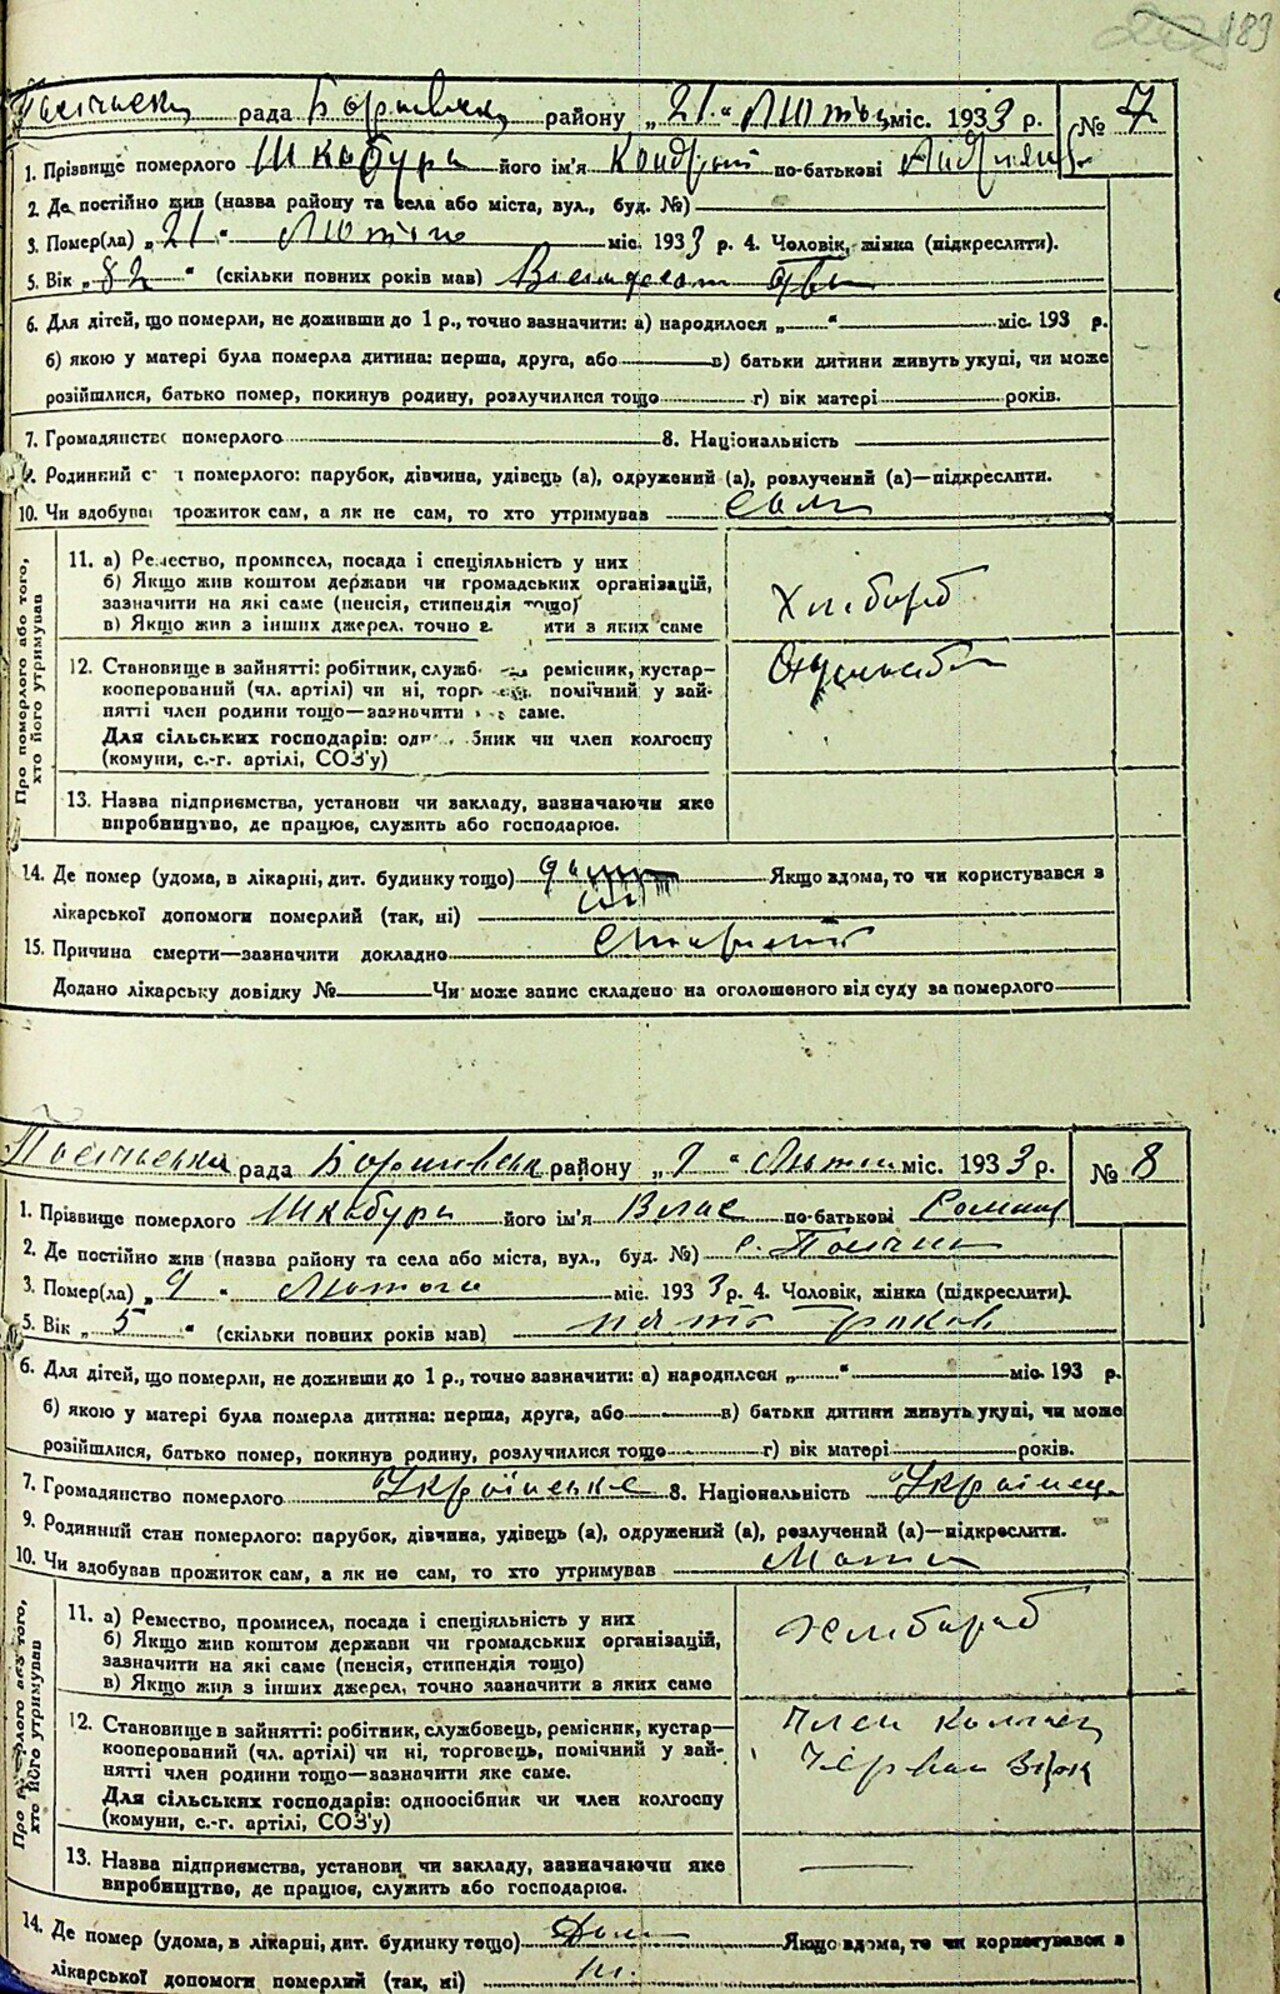 183
рада району „21.“ міс. 1933 р. № 7
1. Прізвище померлого Шкабура його ім'я Кондрат по-батькові
2. Де постійно жив (назва району та села або міста, вул., буд. №)
3. Помер(ла) „21“ Лютого міс. 1933 р. 4. Чоловік, жінка (підкреслити).
5. Вік „82“ (скільки повних років мав)
6. Для дітей, що померли, не доживши до 1 р., точно зазначити: а) народилося „ “ міс. 193 р.
б) якою у матері була померла дитина: перша, друга, або в) батьки дитини живуть укупі, чи може
розійшлися, батько помер, покинув родину, розлучилися тощо г) вік матері років.
7. Громадянство померлого 8. Національність
9. Родинний с н померлого: парубок, дівчина, удівець (а), одружений (а), розлучений (а)—підкреслити.
10. Чи здобував прожиток сам, а як не сам, то хто утримував сам
Про померлого або того, хто його утримував
11. а) Ремество, промисел, посада і спеціяльність у них
б) Якщо жив коштом держави чи громадських організацій,
зазначити на які саме (пенсія, стипендія тощо)
в) Якщо жив з інших джерел, точно з ити з яких саме
Хлібороб
12. Становище в зайнятті: робітник, служб ремісник, кустар—
кооперований (чл. артілі) чи ні, торг помічний у зай-
нятті член родини тощо—зазначити саме.
Для сільських господарів: од бник чи член колгоспу
(комуни, с.-г. артілі, СОЗ'у)
13. Назва підприємства, установи чи закладу, зазначаючи яке
виробництво, де працює, служить або господарює.
14. Де помер (удома, в лікарні, дит. будинку тощо) Якщо вдома, то чи користувався з
лікарської допомоги померлий (так, ні) ні
15. Причина смерти—зазначити докладно старість
Додано лікарську довідку № Чи може запис складено на оголошеного від суду за померлого
рада району „9“ міс. 1933 р. № 8
1. Прізвище померлого Шкабура його ім'я Влас по-батькові
2. Де постійно жив (назва району та села або міста, вул., буд. №) с.
3. Помер(ла) „9“ Лютого міс. 1933 р. 4. Чоловік, жінка (підкреслити).
5. Вік „5“ (скільки повних років мав) пять років
6. Для дітей, що померли, не доживши до 1 р., точно зазначити: а) народилося „ “ міс. 193 р.
б) якою у матері була померла дитина: перша, друга, або в) батьки дитини живуть укупі, чи може
розійшлися, батько помер, покинув родину, розлучилися тощо г) вік матері років.
7. Громадянство померлого Українське 8. Національність Українец
9. Родинний стан померлого: парубок, дівчина, удівець (а), одружений (а), розлучений (а)—підкреслити.
10. Чи здобував прожиток сам, а як не сам, то хто утримував Мати
Про померлого або того, хто його утримував
11. а) Ремество, промисел, посада і спеціяльність у них
б) Якщо жив коштом держави чи громадських організацій,
зазначити на які саме (пенсія, стипендія тощо)
в) Якщо жив з інших джерел, точно зазначити з яких саме
Хлібороб
12. Становище в зайнятті: робітник, службовець, ремісник, кустар—
кооперований (чл. артілі) чи ні, торговець, помічний у зай-
нятті член родини тощо—зазначити яке саме.
Для сільських господарів: одноосібник чи член колгоспу
(комуни, с.-г. артілі, СОЗ'у)
13. Назва підприємства, установи чи закладу, зазначаючи яке
виробництво, де працює, служить або господарює.
14. Де помер (удома, в лікарні, дит. будинку тощо) Якщо вдома, то чи користувався з
лікарської допомоги померлий (так, ні) ні.